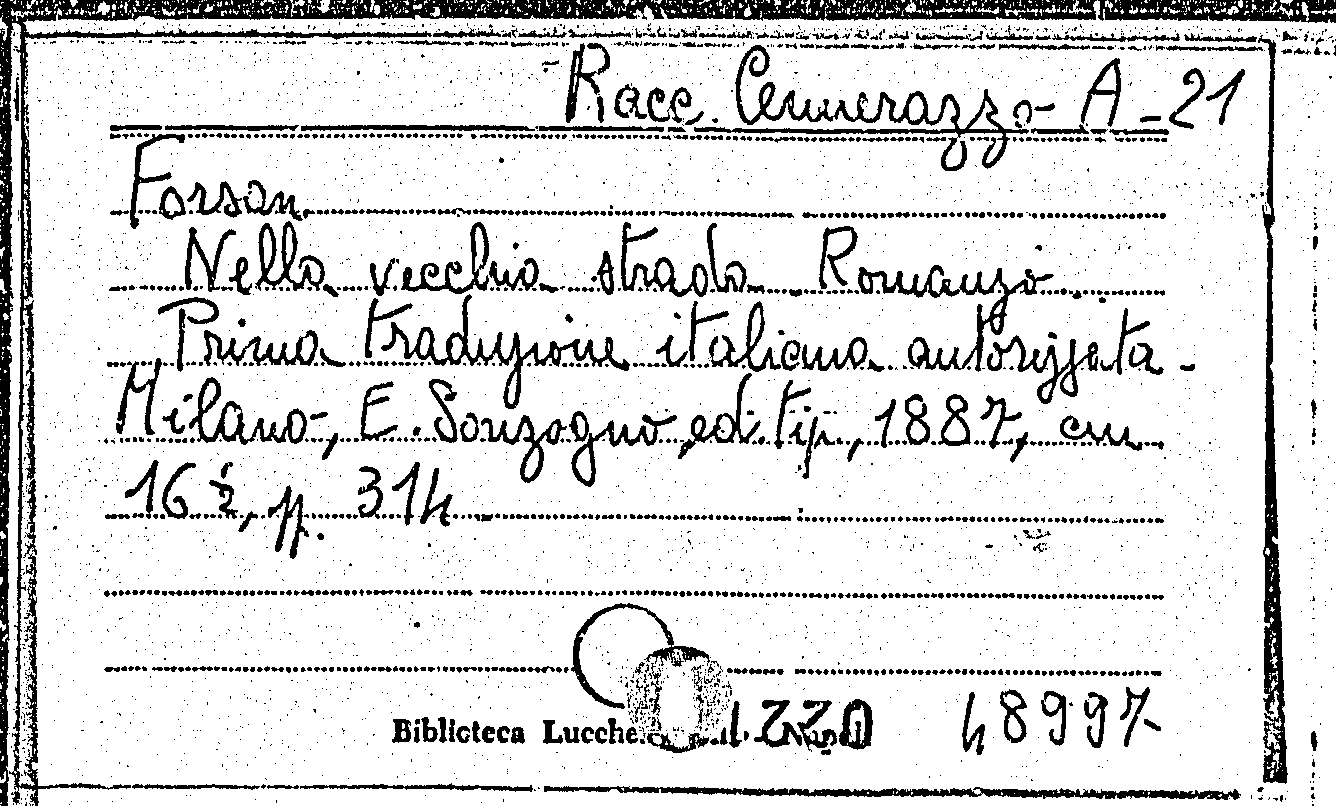 Racc. Cennerazzo A-21
Forsan
Nella vecchia strada. Romanzo.
Prima traduzione italiana autorizzata -
Milano, E. Sonzogno, ed. tip., 1887, cm
16 ½, pp. 314
Biblioteca 48997